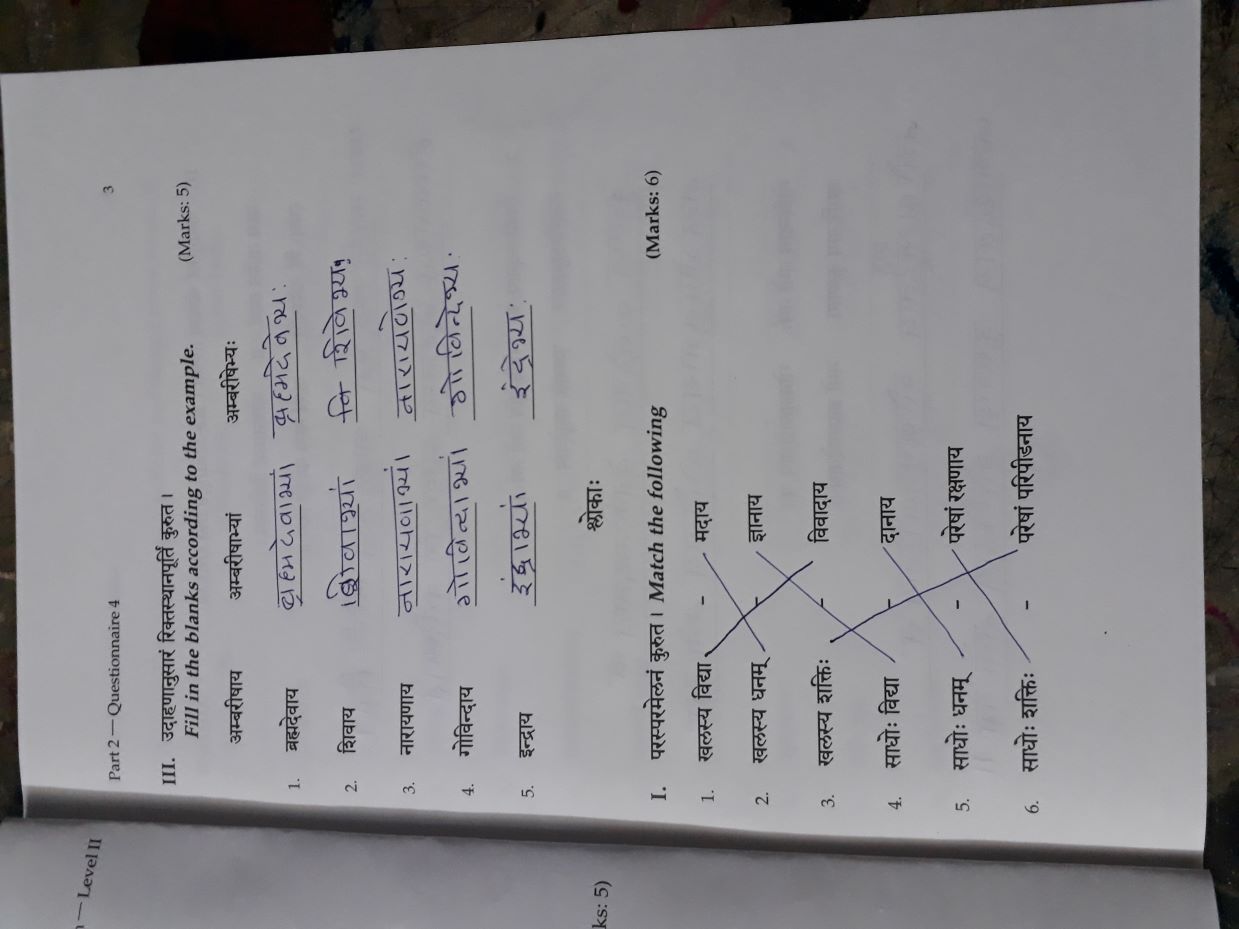 — Level II
Part 2 — Questionnaire 4 3
III. उदाहणानुसारं रिक्तस्थानपूर्तिं कुरुत ।
Fill in the blanks according to the example. (Marks: 5)
अम्बरीषाय अम्बरीषाभ्यां अम्बरीषेभ्यः
1. ब्रह्मदेवाय ब्रह्मदेवाभ्यां ब्रह्मदेवेभ्यः
2. शिवाय शिवाभ्यां शिवेभ्यः
3. नारायणाय नारायणाभ्यां नारायणेभ्यः
4. गोविन्दाय गोविन्दाभ्यां गोविन्देभ्यः
5. इन्द्राय इंद्राभ्यां इंद्रेभ्यः
ks: 5)
श्लोकाः
I. परस्परमेलनं कुरुत । Match the following (Marks: 6)
1. खलस्य विद्या - मदाय
2. खलस्य धनम् - ज्ञानाय
3. खलस्य शक्तिः - विवादाय
4. साधोः विद्या - दानाय
5. साधोः धनम् - परेषां रक्षणाय
6. साधोः शक्तिः - परेषां परिपीडनाय